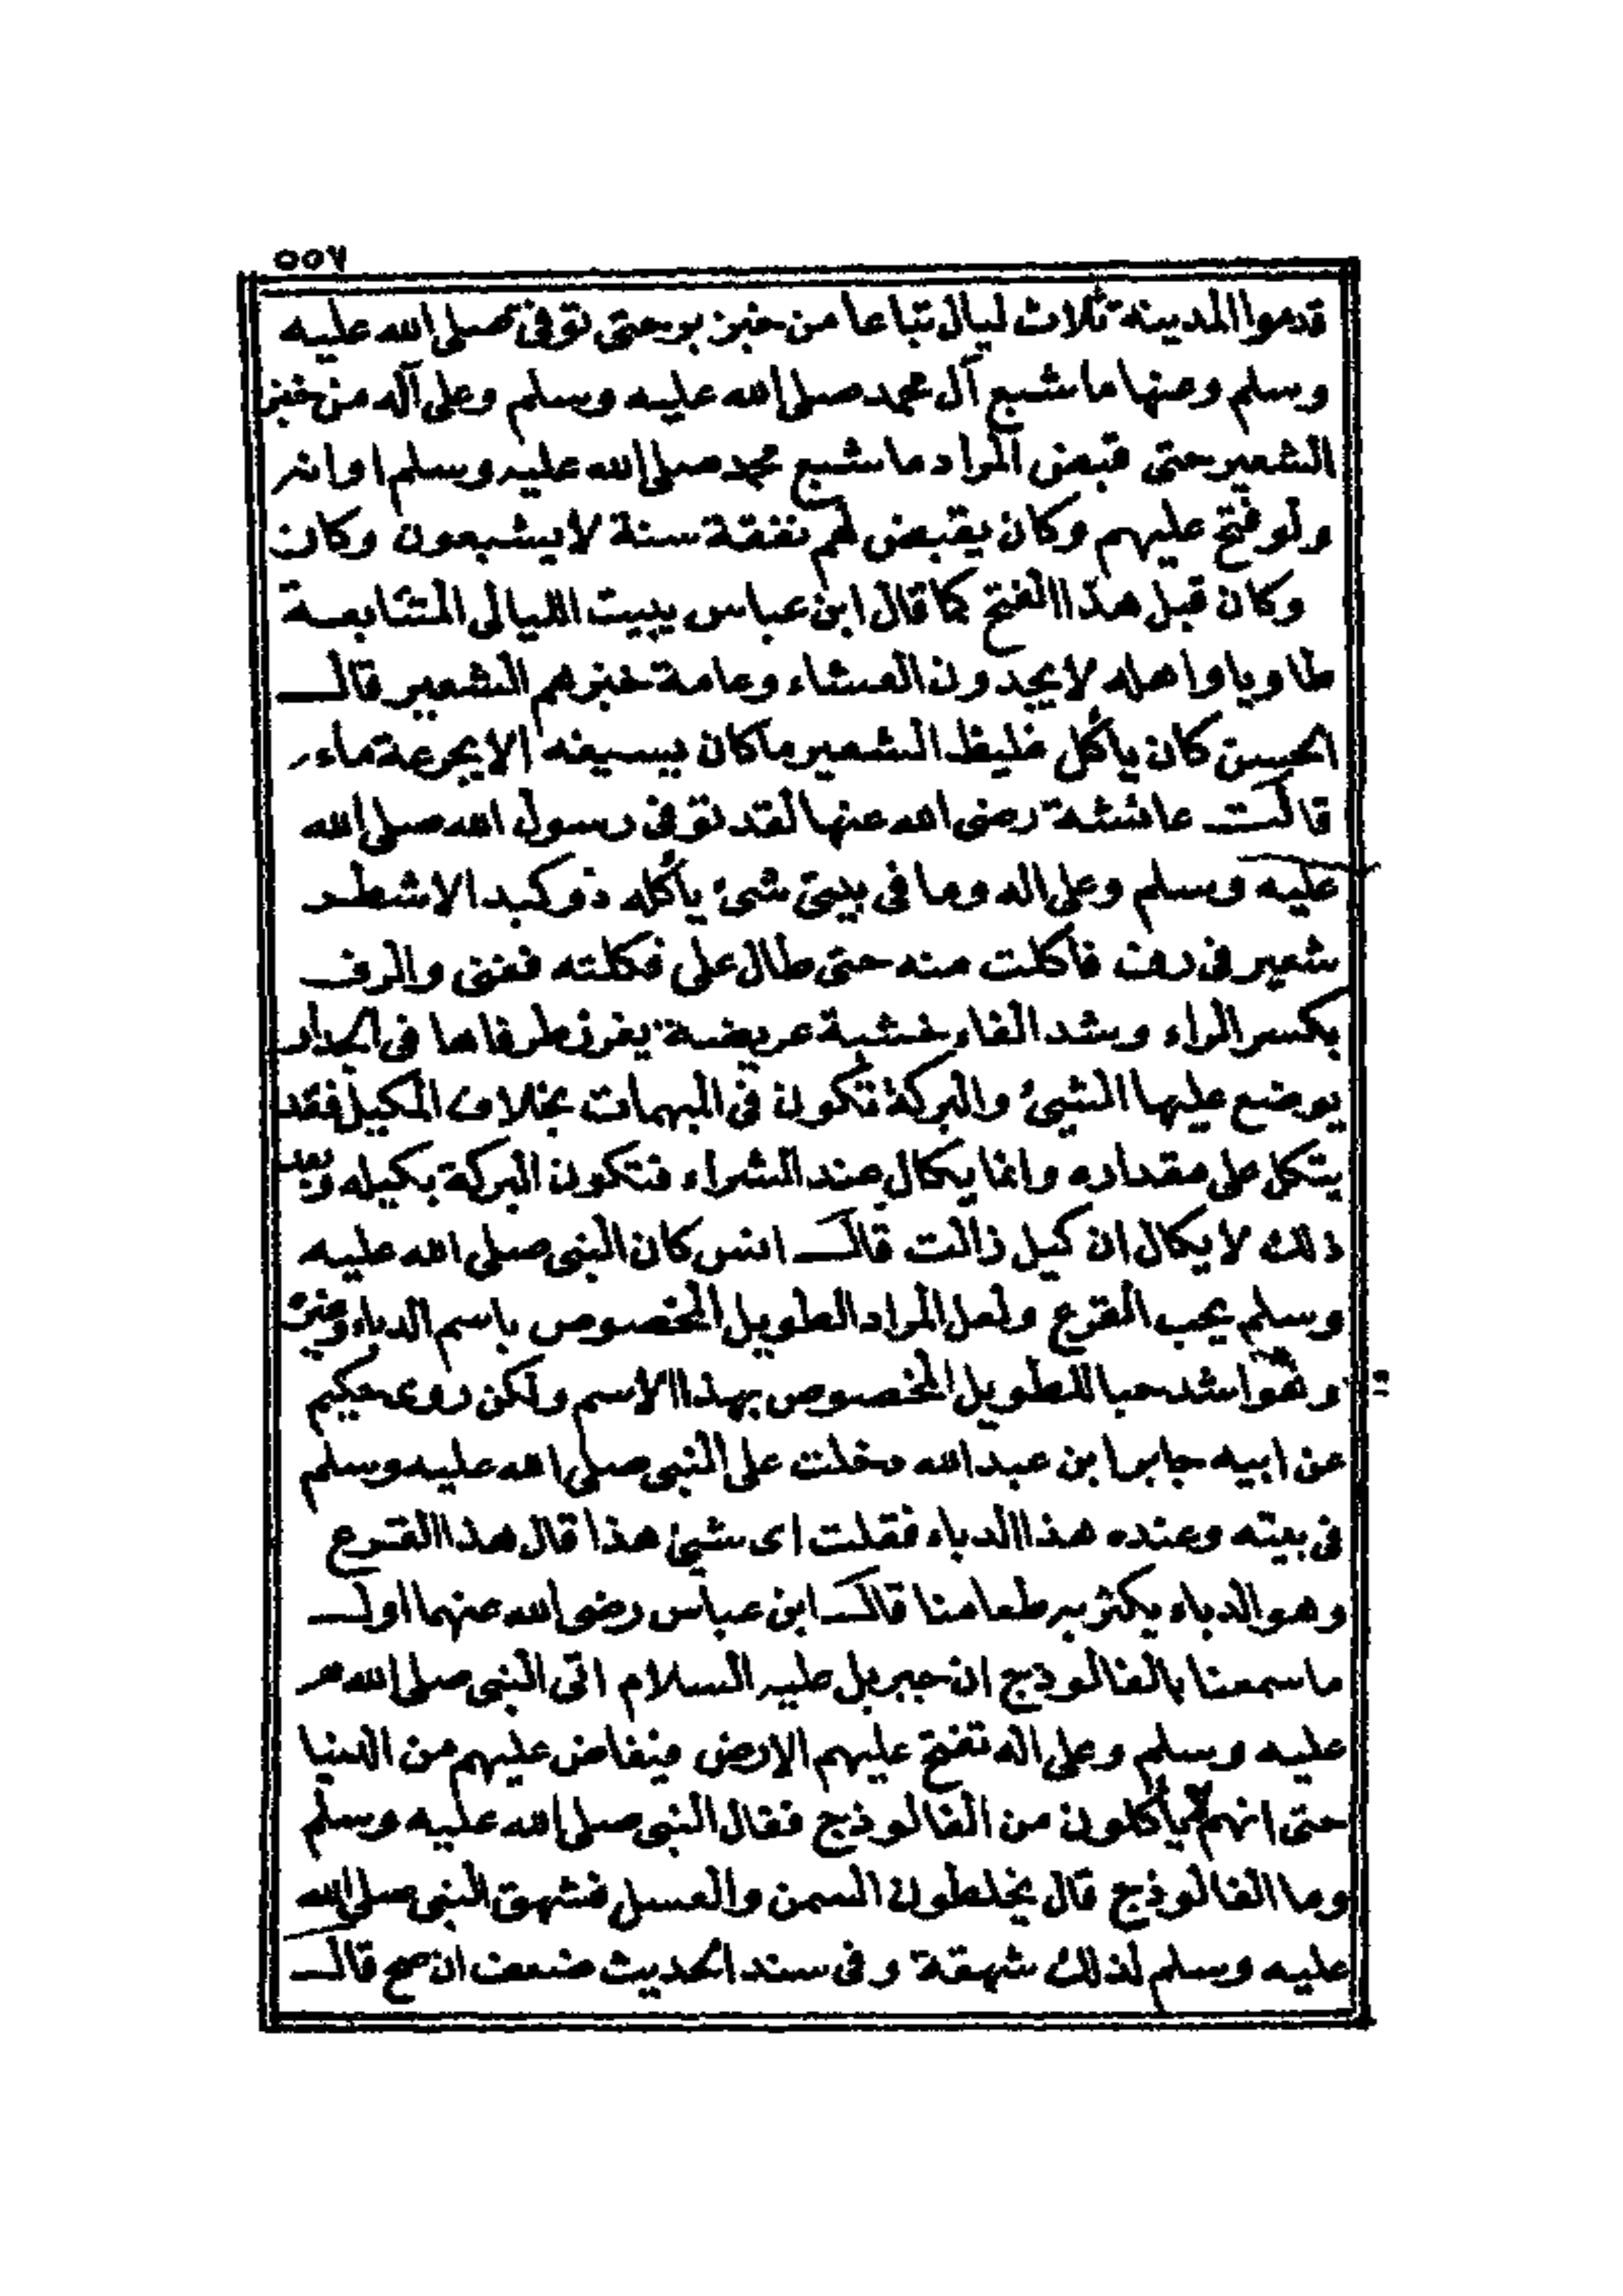 ٥٥٧
قدموا المدينة ثلاث ليال تباعا من خبز بر حتى توفى صلى الله عليه
وسلم وعنها ما شبع آل محمد صلى الله عليه وسلم وعلى آله من خبز
الشعير حتى قبض المراد ما شبع محمد صلى الله عليه وسلم او انه
ولو فتح عليهم وكان يقبض لهم نفقة سنة لا يشبعون وكان
وكان قبل هذا الفتح كما قال ابن عباس يبيت الليالى المتتابعة
طاويا واهله لا يجدون العشاء وعامة خبزهم الشعير قال
الحسن كان يأكل غليظ الشعير ما كان يسيغه الا بجرعة ماء
قالت عائشة رضى الله عنها لقد توفى رسول الله صلى الله
عليه وسلم وعلى اله وما فى بيتى شئ يأكله ذو كبد الا شطر
شعير فى رف فاكلت منه حتى طال على فكلته ففنى والرف
بكسر الراء وشد الفاء خشبة عريضة يغرز طرفاها فى الجدار
يوضع عليها الشئ والبركة تكون فى المبهمات بخلاف المكيل فقد
يتكل على مقداره وانما يكال عند الشراء فتكون البركة بكيله وبعد
ذلك لا يكال ان كيل زالت قال انس كان النبى صلى الله عليه
وسلم يحب القرع ولعل المراد الطويل المخصوص باسم الدباء وغيره
وهو اشد حبا للطويل المخصوص بهذا الاسم ولكن روى حكيم
عن ابيه جابر ابن عبد الله دخلت على النبى صلى الله عليه وسلم
فى بيته وعنده هذا الدباء فقلت اى شئ هذا قال هذا القرع
وهو الدباء يكثر به طعامنا قال ابن عباس رضى الله عنهما اول
ما سمعنا بالفالوذج ان جبريل عليه السلام اتى النبى صلى الله
عليه وسلم وعلى اله تفتح عليهم الارض فيفاض عليهم من الدنيا
حتى انهم يأكلون من الفالوذج فقال النبى صلى الله عليه وسلم
وما الفالوذج قال يخلطون السمن والعسل فشهق النبى صلى الله
عليه وسلم لذلك شهقة وفى سند الحديث ضعف ان صح قال